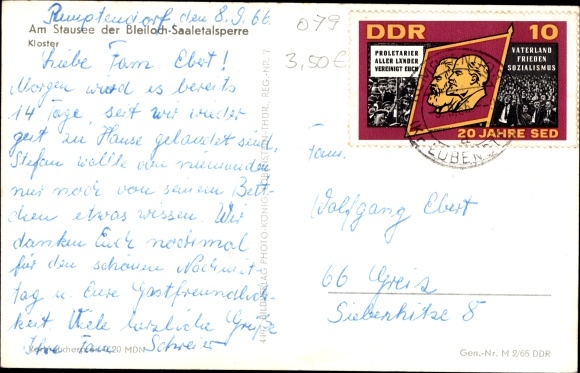 Remptendorf den 8.9.66
Am Stausee der Bleiloch-Saaletalsperre
Kloster
Liebe Fam. Ebert!
Morgen wird es bereits
14 Tage, seit wir wieder
gut zu Hause gelandet sind,
Stefan wollte von niemanden
nur noch von seinem Bett-
chen etwas wissen. Wir
danken Euch nochmal
für den schönen Nachmit-
tag u. Eure Gastfreundlich-
keit. Viele herzliche Grüße
Ihre Fam. Schreier
20 MDN
079
3,50 €
DDR 10
PROLETARIER
ALLER LÄNDER
VEREINIGT EUCH
VATERLAND
FRIEDEN
SOZIALISMUS
20 JAHRE SED
Fam.
Wolfgang Ebert
66 Greiz
Siebenhitze 8
Gen.-Nr. M 2/65 DDR